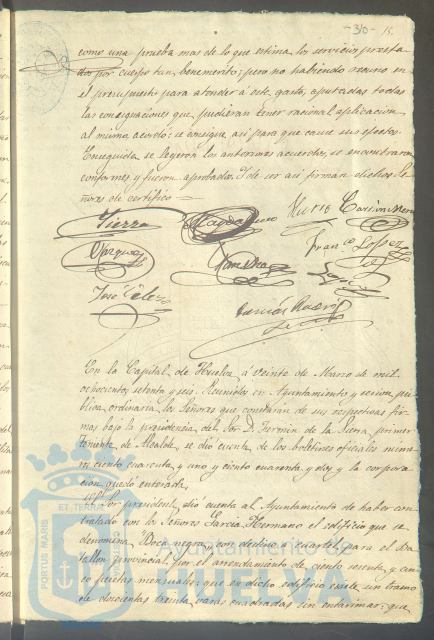 -30- 15.
como una prueba mas de lo que estima los servicios presta
dos por cuerpo tan benemerito; pero no habiendo recurso en
el presupuesto para atender á este gasto, apuradas todas
las consignaciones que pudieran tener racional aplicacion
al mismo, acordó: se consigne asi para que cause sus efectos.
Enseguida se leyeron los anteriores acuerdos, se encontraron
conformes y fueron aprobados. Y de ser asi firman dichos Se
ñores de certifico =
Sierra
Vazquez
Franco Lopez
José
En la Capital de Huelva á veinte de Marzo de mil
ochocientos setenta y seis. Reunidos en Ayuntamiento y sesion pú
blica ordinaria los Señores que constaran de sus respectivas fir
mas bajo la presidencia del Sor. D. Fermin de la Sierra, primer
teniente de Alcalde, se dió cuenta de los boletines oficiales núme
ro ciento cuarenta y uno y ciento cuarenta y dos y la corpora
cion quedó enterada.
El Sor. president dió cuenta al Ayuntamiento de haber con
tratado con los Señores Garcia Hermano el edificio que se
denomina Boca negra, con destino á cuartel para el Ba
tallon provincial, por el arrendamiento de ciento sesenta y cin
co pesetas mensuales: que en dicho edificio existe un tramo
de doscientas treinta varas cuadradas sin entarimar; que
PORTUS MARIS
ET TERRAE
Ayuntamiento de
HUELVA